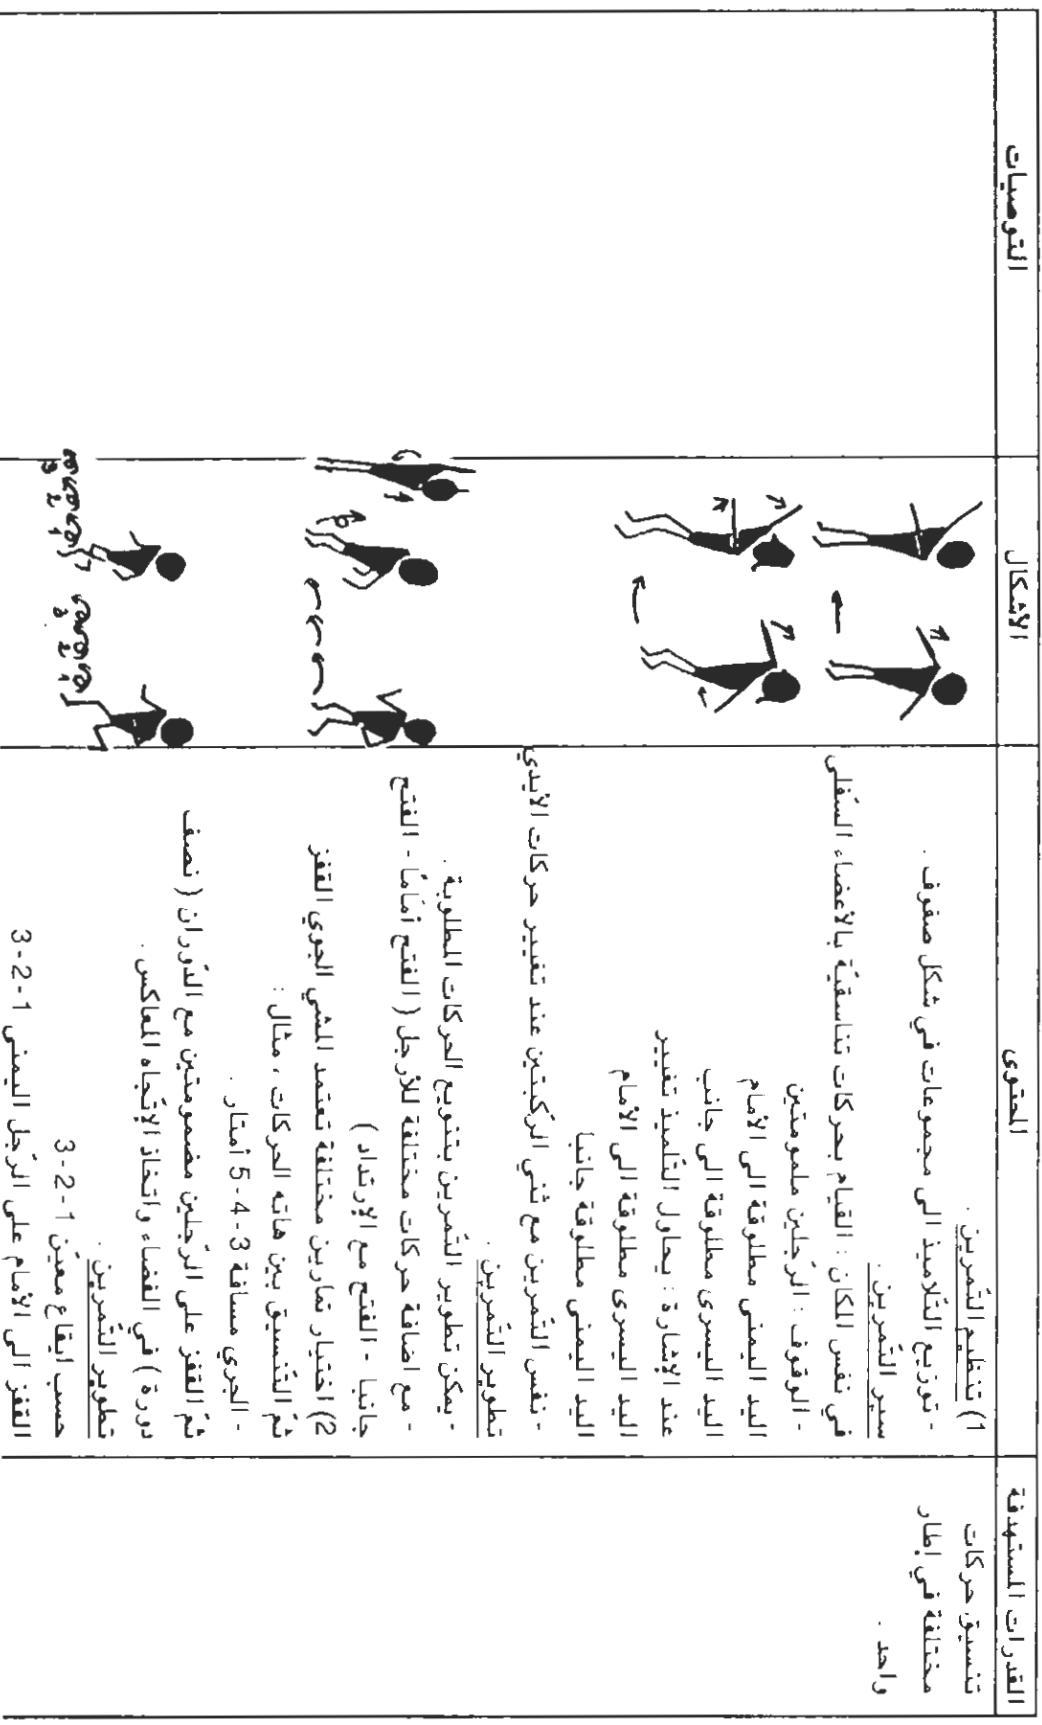 القدرات المستهدفة
المحتوى
الأشكال
التوصيات
تنسيق حركات
مختلفة في اطار
واحد .
1) تنظيم التّمرين .
- توزيع التّلاميذ الى مجموعات في شكل صفوف .
سير التّمرين .
في نفس المكان : القيام بحركات تناسقيّة بالأعضاء السّفلى
- الوقوف : الرّجلين ملمومتين
اليد اليمنى مطلوقة الى الأمام
اليد اليسرى مطلوقة الى جانب
عند الإشارة : يحاول التّلميذ تغيير
اليد اليسرى مطلوقة الى الأمام
اليد اليمنى مطلوقة جانبا
- نفس التّمرين مع ثني الرّكبتين عند تغيير حركات الأيدي
تطوير التّمرين .
- يمكن تطوير التّمرين بتنويع الحركات المطلوبة .
- مع اضافة حركات مختلفة للأرجل ( الفتح أمَامًا - الفتح
جانبا - الفتح مع الإرتداد )
2) اختيار تمارين مختلفة تعتمد المشي الجري القفز
ثمّ التّنسيق بين هاته الحركات ، مثال :
- الجري مسافة 3-4-5 أمتار .
ثمّ القفز على الرّجلين مضمومتين مع الدّوران ( نصف
دورة ) في الفضاء واتخاذ الإتّجاه المعاكس .
تطوير التّمرين .
حسب ايقاع معيّن 1-2-3
القفز الى الأمام على الرّجل اليمنى 1-2-3
1 2 3
1 2 3